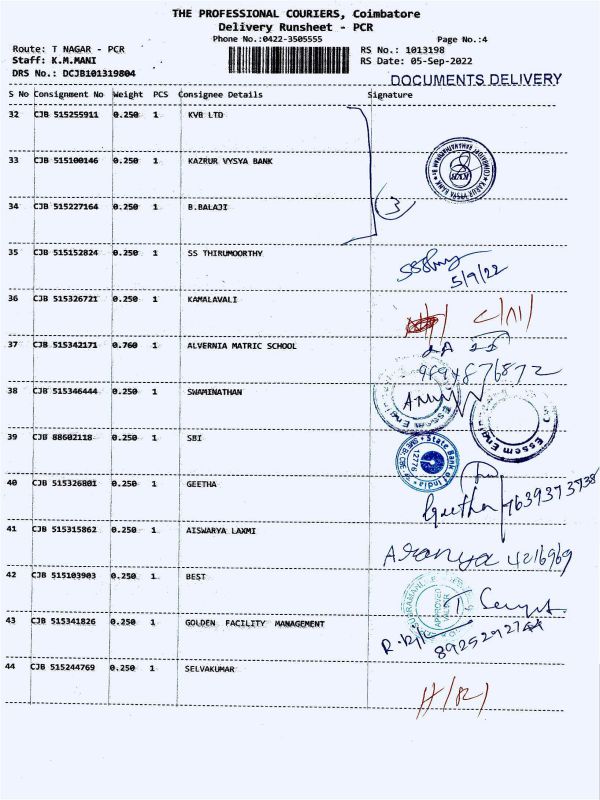 THE PROFESSIONAL COURIERS, Coimbatore
Delivery Runsheet - PCR
Phone No.:0422-3505555 Page No.:4
Route: T NAGAR - PCR RS No.: 1013198
Staff: K.M.MANI RS Date: 05-Sep-2022
DRS No.: DCJB101319804
DOCUMENTS DELIVERY
S No Consignment No Weight PCS Consignee Details Signature
32 CJB 515255911 0.250 1 KVB LTD
33 CJB 515100146 0.250 1 KAZRUR VYSYA BANK
34 CJB 515227164 0.250 1 B.BALAJI
3
35 CJB 515152824 0.250 1 SS THIRUMOORTHY
5/9/22
36 CJB 515326721 0.250 1 KAMALAVALI
37 CJB 515342171 0.760 1 ALVERNIA MATRIC SCHOOL
9894876872
38 CJB 515346444 0.250 1 SWAMINATHAN
Essem Engin
39 CJB 88602118 0.250 1 SBI
State Bank of India
12776
40 CJB 515326801 0.250 1 GEETHA
Geetha 9639373938
41 CJB 515315862 0.250 1 AISWARYA LAXMI
Aranya 4216969
42 CJB 515103903 0.250 1 BEST
APPROVED
43 CJB 515341826 0.250 1 GOLDEN FACILITY MANAGEMENT
8925292744
44 CJB 515244769 0.250 1 SELVAKUMAR